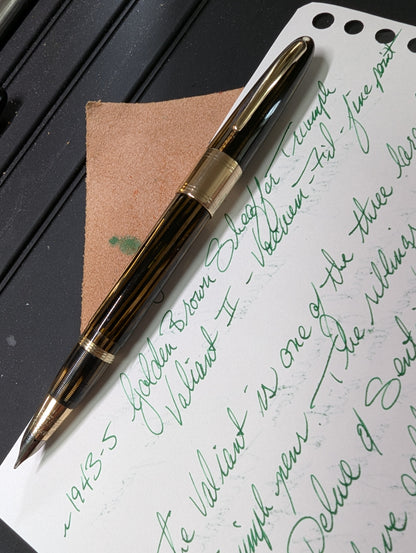 ~1943-5 Golden Brown Sheaffer Triumph
Valiant II - Vacuum-Fil - fine point
The Valiant is one of the three lar
Triumph pens. The siblings
Deluxe & Sent